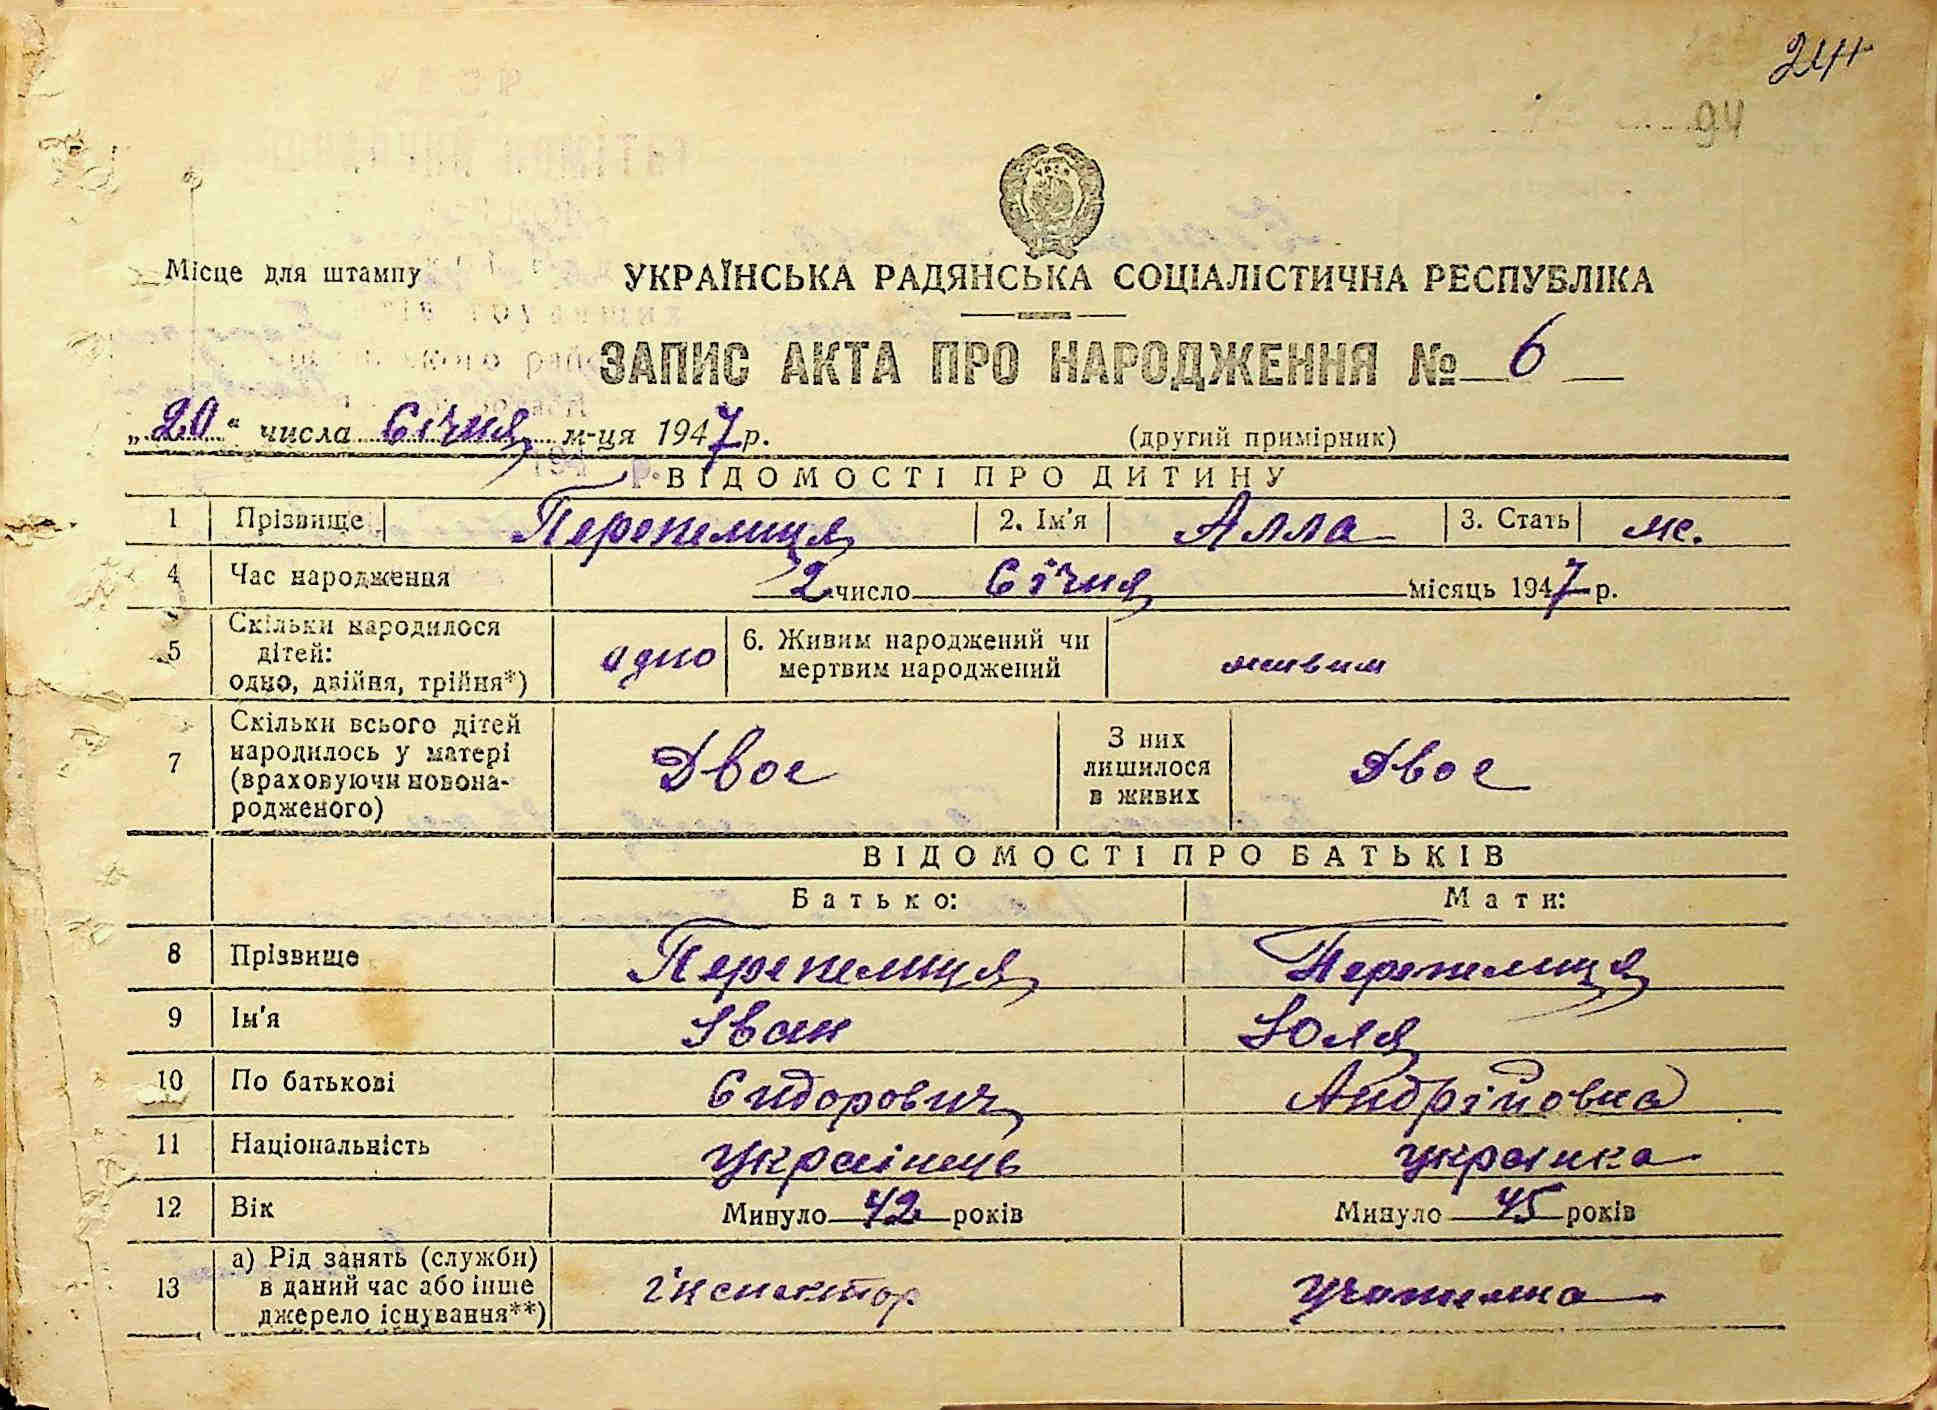 94
Місце для штампу
УКРАЇНСЬКА РАДЯНСЬКА СОЦІАЛІСТИЧНА РЕСПУБЛІКА
ЗАПИС АКТА ПРО НАРОДЖЕННЯ № 6
„20“ числа Січня м-ця 1947 р. (другий примірник)
ВІДОМОСТІ ПРО ДИТИНУ
1 Прізвище Перепелиця 2. Ім'я Алла 3. Стать ж.
4 Час народження 2 число Січня місяць 1947 р.
5 Скільки народилося дітей: одно, двійня, трійня*) одно 6. Живим народжений чи мертвим народжений живим
7 Скільки всього дітей народилось у матері (враховуючи новонародженого) Двое З них лишилося в живих Двое
ВІДОМОСТІ ПРО БАТЬКІВ
Батько: Мати:
8 Прізвище Перепелиця Перепелиця
9 Ім'я Іван Юля
10 По батькові Сидорович Андрійовна
11 Національність Українець українка
12 Вік Минуло 42 років Минуло 45 років
13 а) Рід занять (служби) в даний час або інше джерело існування**) інспектор учителка